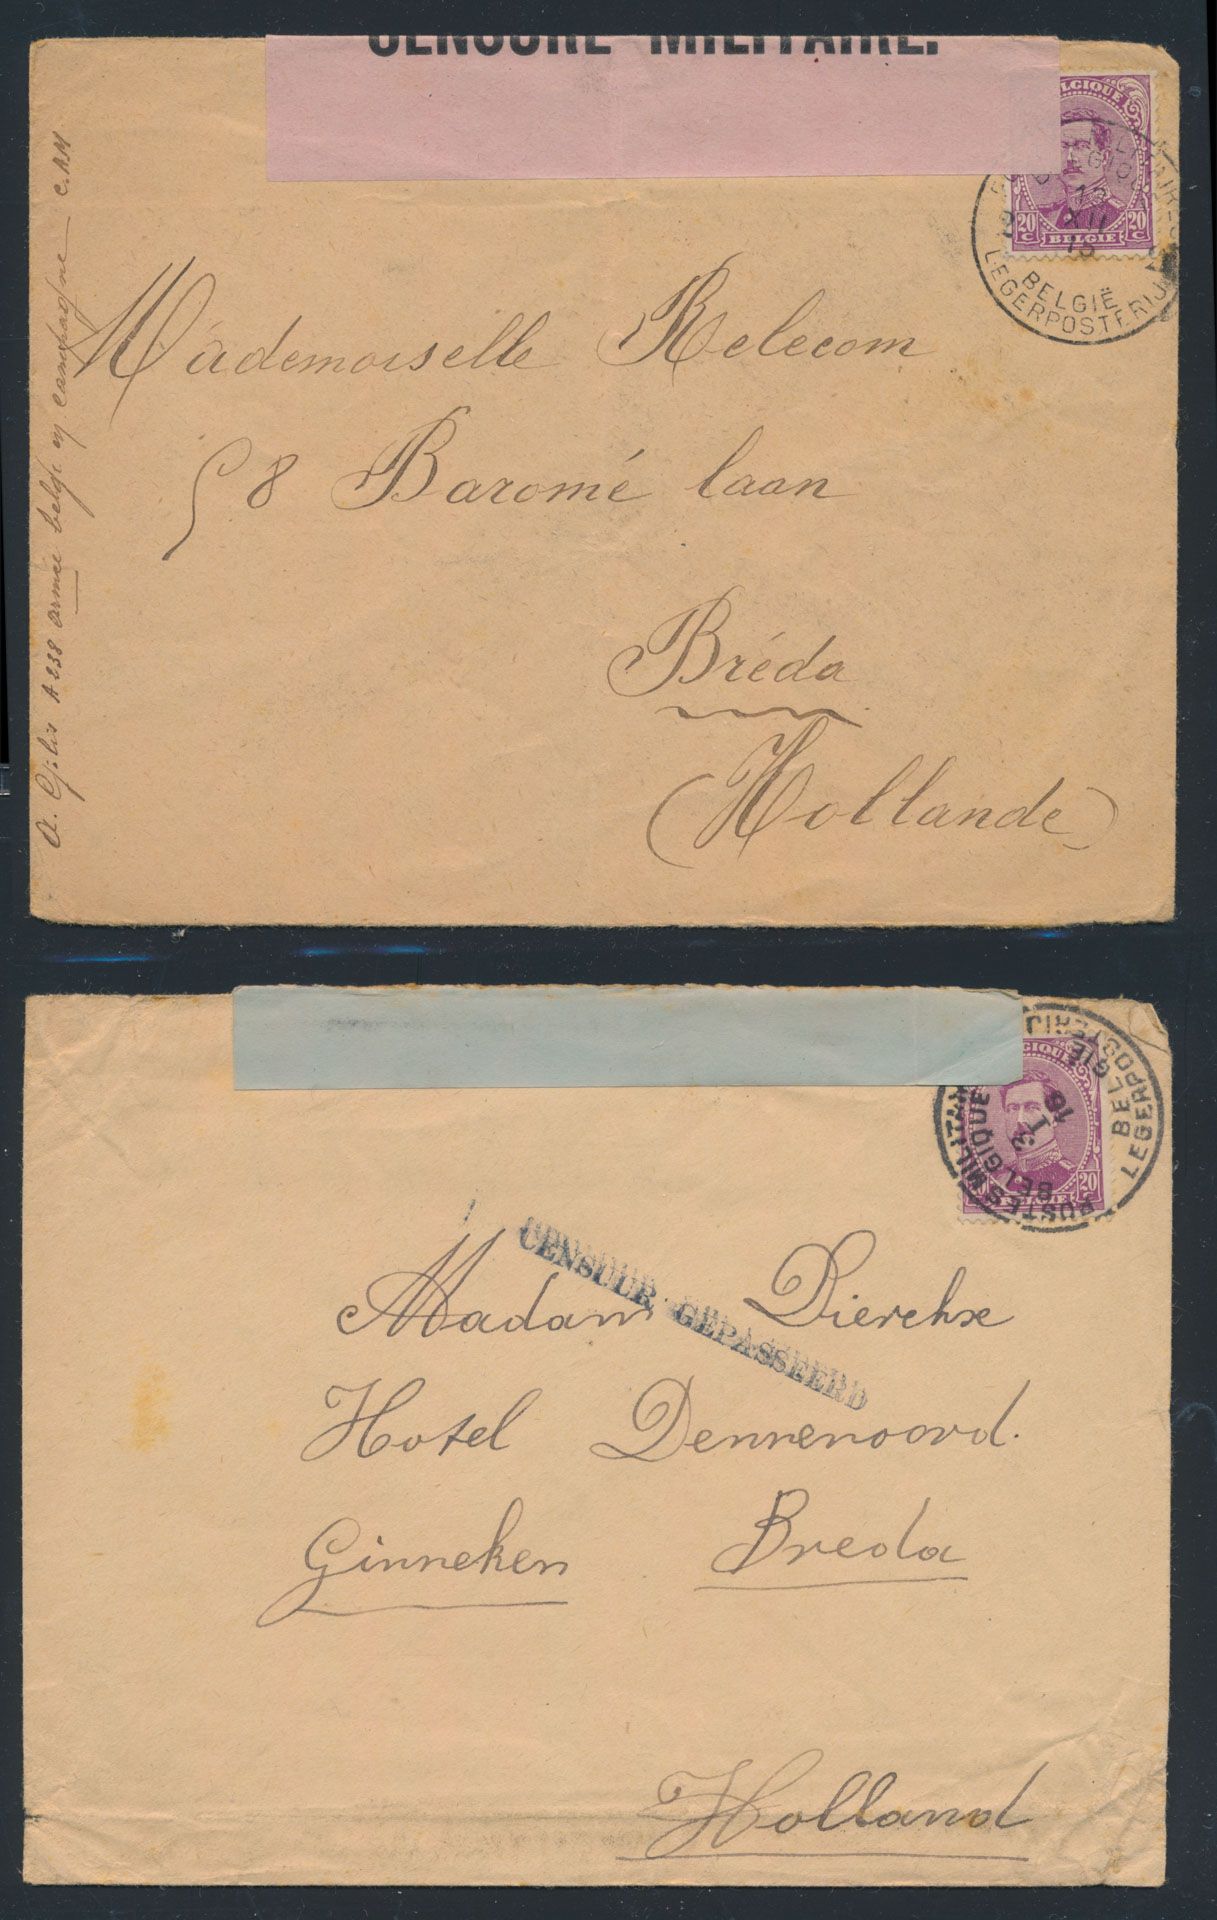 CENSURE MILITAIRE.
BELGIQUE
20 C 20 C
BELGIË
XII
15
BELGIË
LEGERPOSTERIJ
Mademoiselle Relecom
58 Baromé laan
Bréda
(Hollande)
A 238 armée belge en campagne C.AM
BELGIQUE
20
BELGIË
POSTES MILITAIRES
BELGIQUE
3
I
16
BELGIË
LEGERPOSTERIJ
CENSUUR GEPASSEERD
Madam Dierckx
Hotel Dennenoord.
Ginneken Breda
Holland